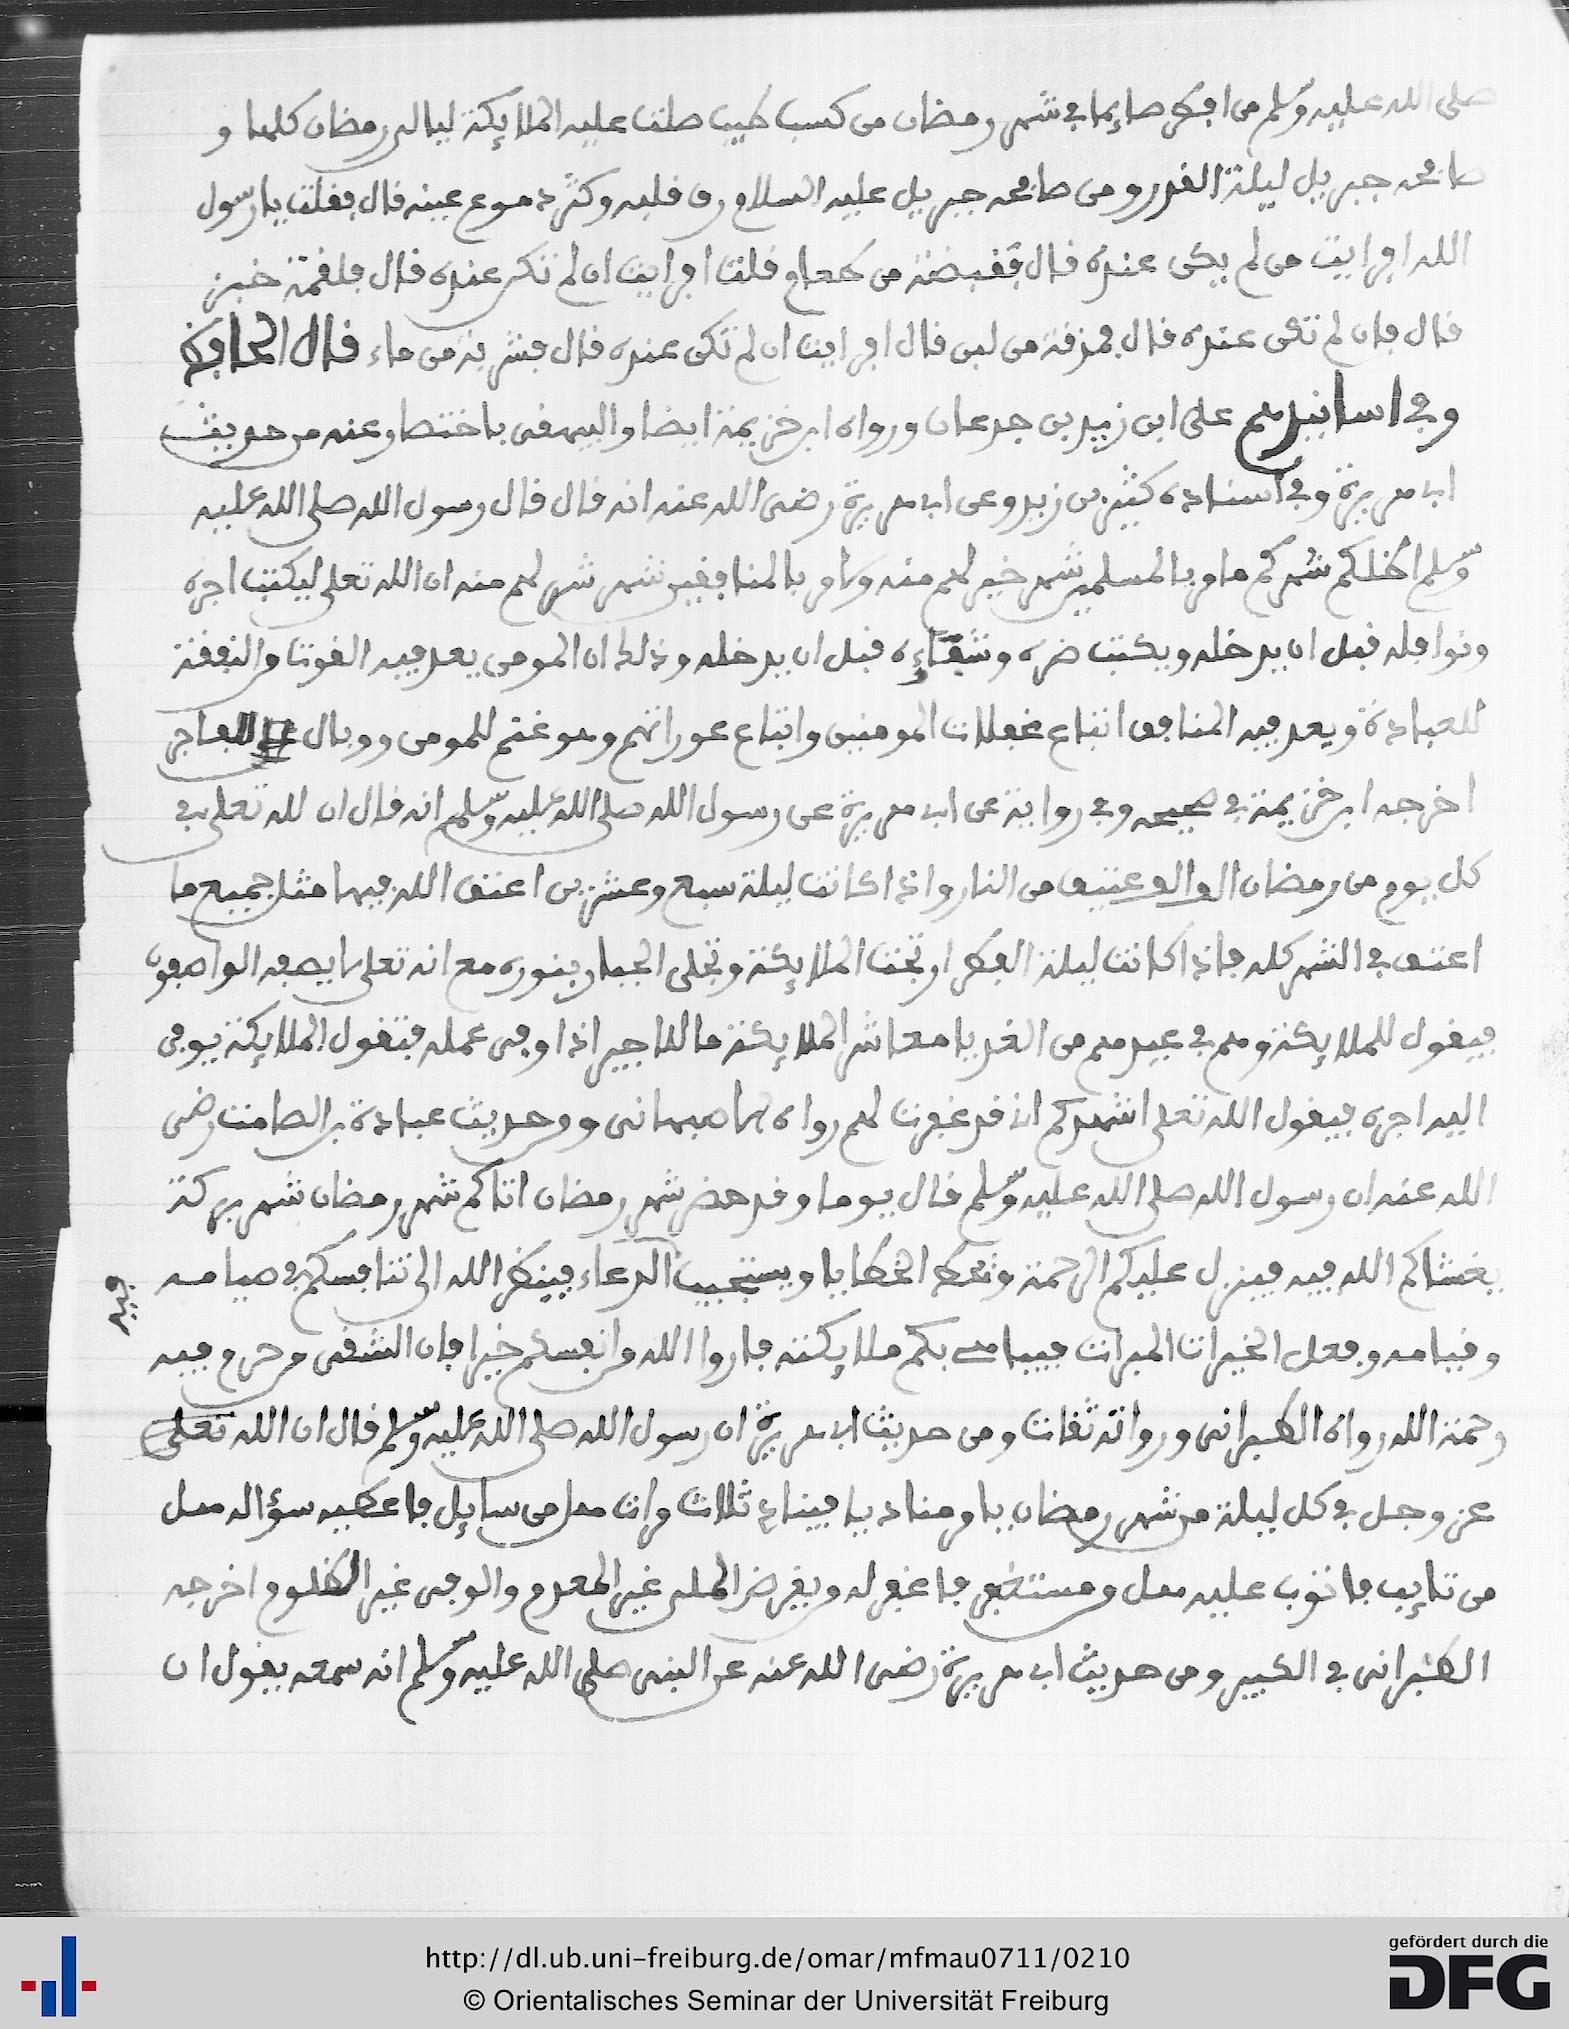 صلى الله عليه وسلم من افطر صايما في شهر رمضان من كسب طيب صلت عليه الملايكة ليالي رمضان كلها و
صافحه جبريل ليلة القدر ومن صافحه جبريل عليه السلام رق قلبه وكثر دموع عينه قال فقلت يا رسول
الله افرايت من لم يكن عنده قال فقبضة من طعام قلت افرايت ان لم تكن عنده قال فلقمة خبز
قال فان لم تكن عنده قال فمذقة من لبن قال افرايت ان لم تكن عنده قال فشربة من ماء قال الحافظ
وفي اسانيدهم على ابن زيد بن جدعان ورواه ابن خزيمة ايضا والبيهقي باختصار عنه من حديث
ابي هريرة وفي اسناده كثير بن زيد وعن ابي هريرة رضي الله عنه انه قال قال رسول الله صلى الله عليه
وسلم اظلكم شهركم ما مر بالمسلمين شهر خير لهم منه ولا مر بالمنافقين شهر شر لهم منه ان الله تعلى ليكتب اجره
ونوافله قبل ان يدخله ويكتب ضره وشقاءه قبل ان يدخله وذلك ان المومن يعد فيه القوت والنفقة
للعبادة ويعد فيه المنافق اتباع غفلات المومنين واتباع عوراتهم وهو غنم للمومن ووبال للفاجر
اخرجه ابن خزيمة في صحيحه وفي رواية عن ابي هريرة عن رسول الله صلى الله عليه وسلم انه قال ان لله تعلى في
كل يوم من رمضان الف الف عتيق من النار واذا كانت ليلة سبع وعشرين اعتق الله فيها مثل جميع ما
اعتق في الشهر كله فاذا كانت ليلة الفطر ارتجت الملايكة وتجلى الجبار بنوره مع انه تعلى لا يصفه الواصفون
فيقول للملايكة وهم في عيدهم من الغد يا معاشر الملايكة ما للاجير اذا وفى عمله فتقول الملايكة يوفى
اليه اجره فيقول الله تعلى اشهدكم اني قد غفرت لهم رواه الاصبهاني ومن حديث عبادة بن الصامت رضي
الله عنه ان رسول الله صلى الله عليه وسلم قال يوما وقد حضر شهر رمضان اتاكم شهر رمضان شهر بركة
يغشاكم الله فيه فينزل عليكم الرحمة وتحط الخطايا ويستجيب الدعاء فينظر الله الى تنافسكم في صيامه
فيه
وقيامه وفعل الخيرات المبرات فيباهي بكم ملايكته فاروا الله من انفسكم خيرا فان الشقي من حرم فيه
رحمة الله رواه الطبراني ورواته ثقات ومن حديث ابي هريرة ان رسول الله صلى الله عليه وسلم قال ان الله تعلى
عز وجل في كل ليلة من شهر رمضان يامر مناديا فينادي ثلاث مرات هل من سايل فاعطيه سؤاله هل
من تايب فاتوب عليه هل من مستغفر فاغفر له من يقرض الملي غير المعدم والوفي غير الظلوم اخرجه
الطبراني في الكبير ومن حديث ابي هريرة رضي الله عنه عن النبي صلى الله عليه وسلم انه سمعه يقول ان
http://dl.ub.uni-freiburg.de/omar/mfmau0711/0210
© Orientalisches Seminar der Universität Freiburg
gefördert durch die
DFG